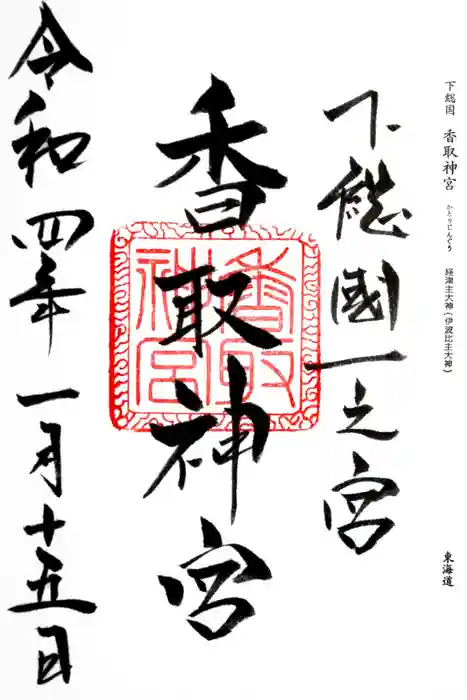 下総国 香取神宮 かとりじんぐう 経津主大神(伊波比主大神) 東海道
下總國一之宮
香取神宮
香取神宮
令和四年一月十五日